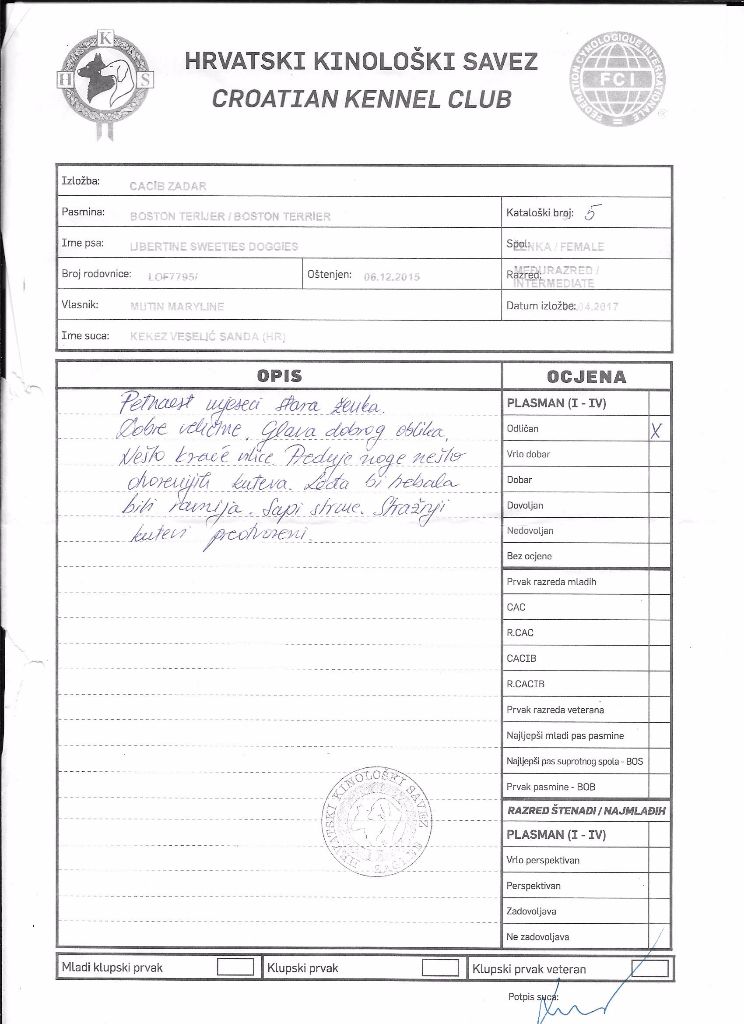 HRVATSKI KINOLOŠKI SAVEZ
CROATIAN KENNEL CLUB
H K S
FEDERATION CYNOLOGIQUE INTERNATIONALE
FCI
Izložba: CACIB ZADAR
Pasmina: BOSTON TERIJER / BOSTON TERRIER
Kataloški broj: 5
Ime psa: LIBERTINE SWEETIES DOGGIES
Spol: ENKA / FEMALE
Broj rodovnice: LOF7795/
Oštenjen: 06.12.2015
Razred: MEĐURAZRED / INTERMEDIATE
Vlasnik: MUTIN MARYLINE
Datum izložbe: .04.2017
Ime suca: KEKEZ VESELIĆ SANDA (HR)
OPIS
Petnaest mjeseci stara ženka.
Dobre veličine. Glava dobrog oblika.
Nešto kraće njuške. Prednje noge nešto
otvorenijih kuteva. Leđa bi trebala
biti ravnija. Sapi strme. Stražnji
kutevi preotvoreni.
OCJENA
PLASMAN (I - IV)
Odličan X
Vrlo dobar
Dobar
Dovoljan
Nedovoljan
Bez ocjene
Prvak razreda mladih
CAC
R.CAC
CACIB
R.CACIB
Prvak razreda veterana
Najljepši mladi pas pasmine
Najljepši pas suprotnog spola - BOS
Prvak pasmine - BOB
RAZRED ŠTENADI / NAJMLAĐIH
PLASMAN (I - IV)
Vrlo perspektivan
Perspektivan
Zadovoljava
Ne zadovoljava
HRVATSKI KINOLOŠKI SAVEZ
Mladi klupski prvak
Klupski prvak
Klupski prvak veteran
Potpis suca: